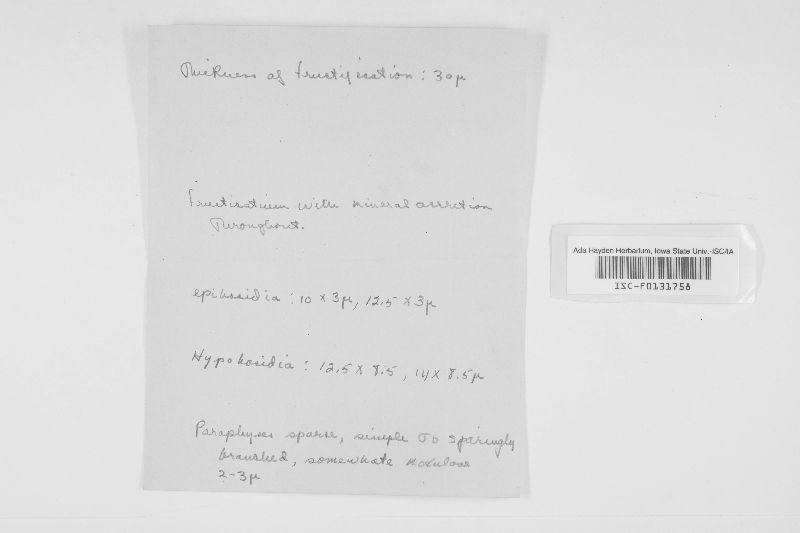 Thickness of fructification: 30μ
Fructification with mineral accretion
Throughout.
epibasidia: 10 × 3μ, 12.5 × 3μ
Hypobasidia: 12.5 × 8.5, 14 × 8.5μ
Paraphyses sparse, simple to sparingly
branched, somewhate nodulose
2-3μ
Ada Hayden Herbarium, Iowa State Univ.-ISC/IA
ISC-F0131758